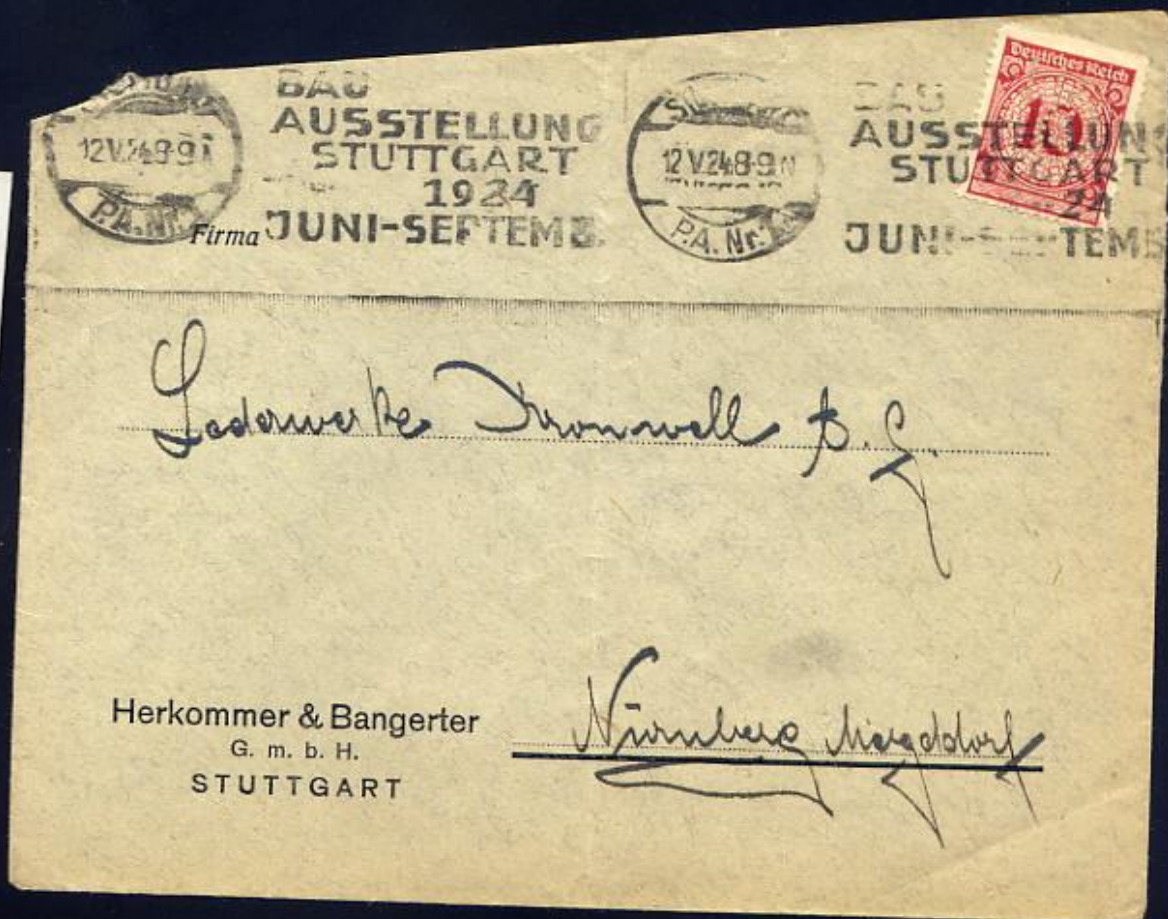 12.V.24.8-9N
P.A.Nr.
BAU
AUSSTELLUNG
STUTTGART
1924
JUNI-SEPTEMB.
12.V.24.8-9N
P.A.Nr.
BAU
AUSSTELLUNG
STUTTGART
24
JUNI-SEPTEMB
Deutsches Reich
10
Firma
Lederwerke A. G.
Herkommer & Bangerter
G. m. b. H.
STUTTGART
Nürnberg